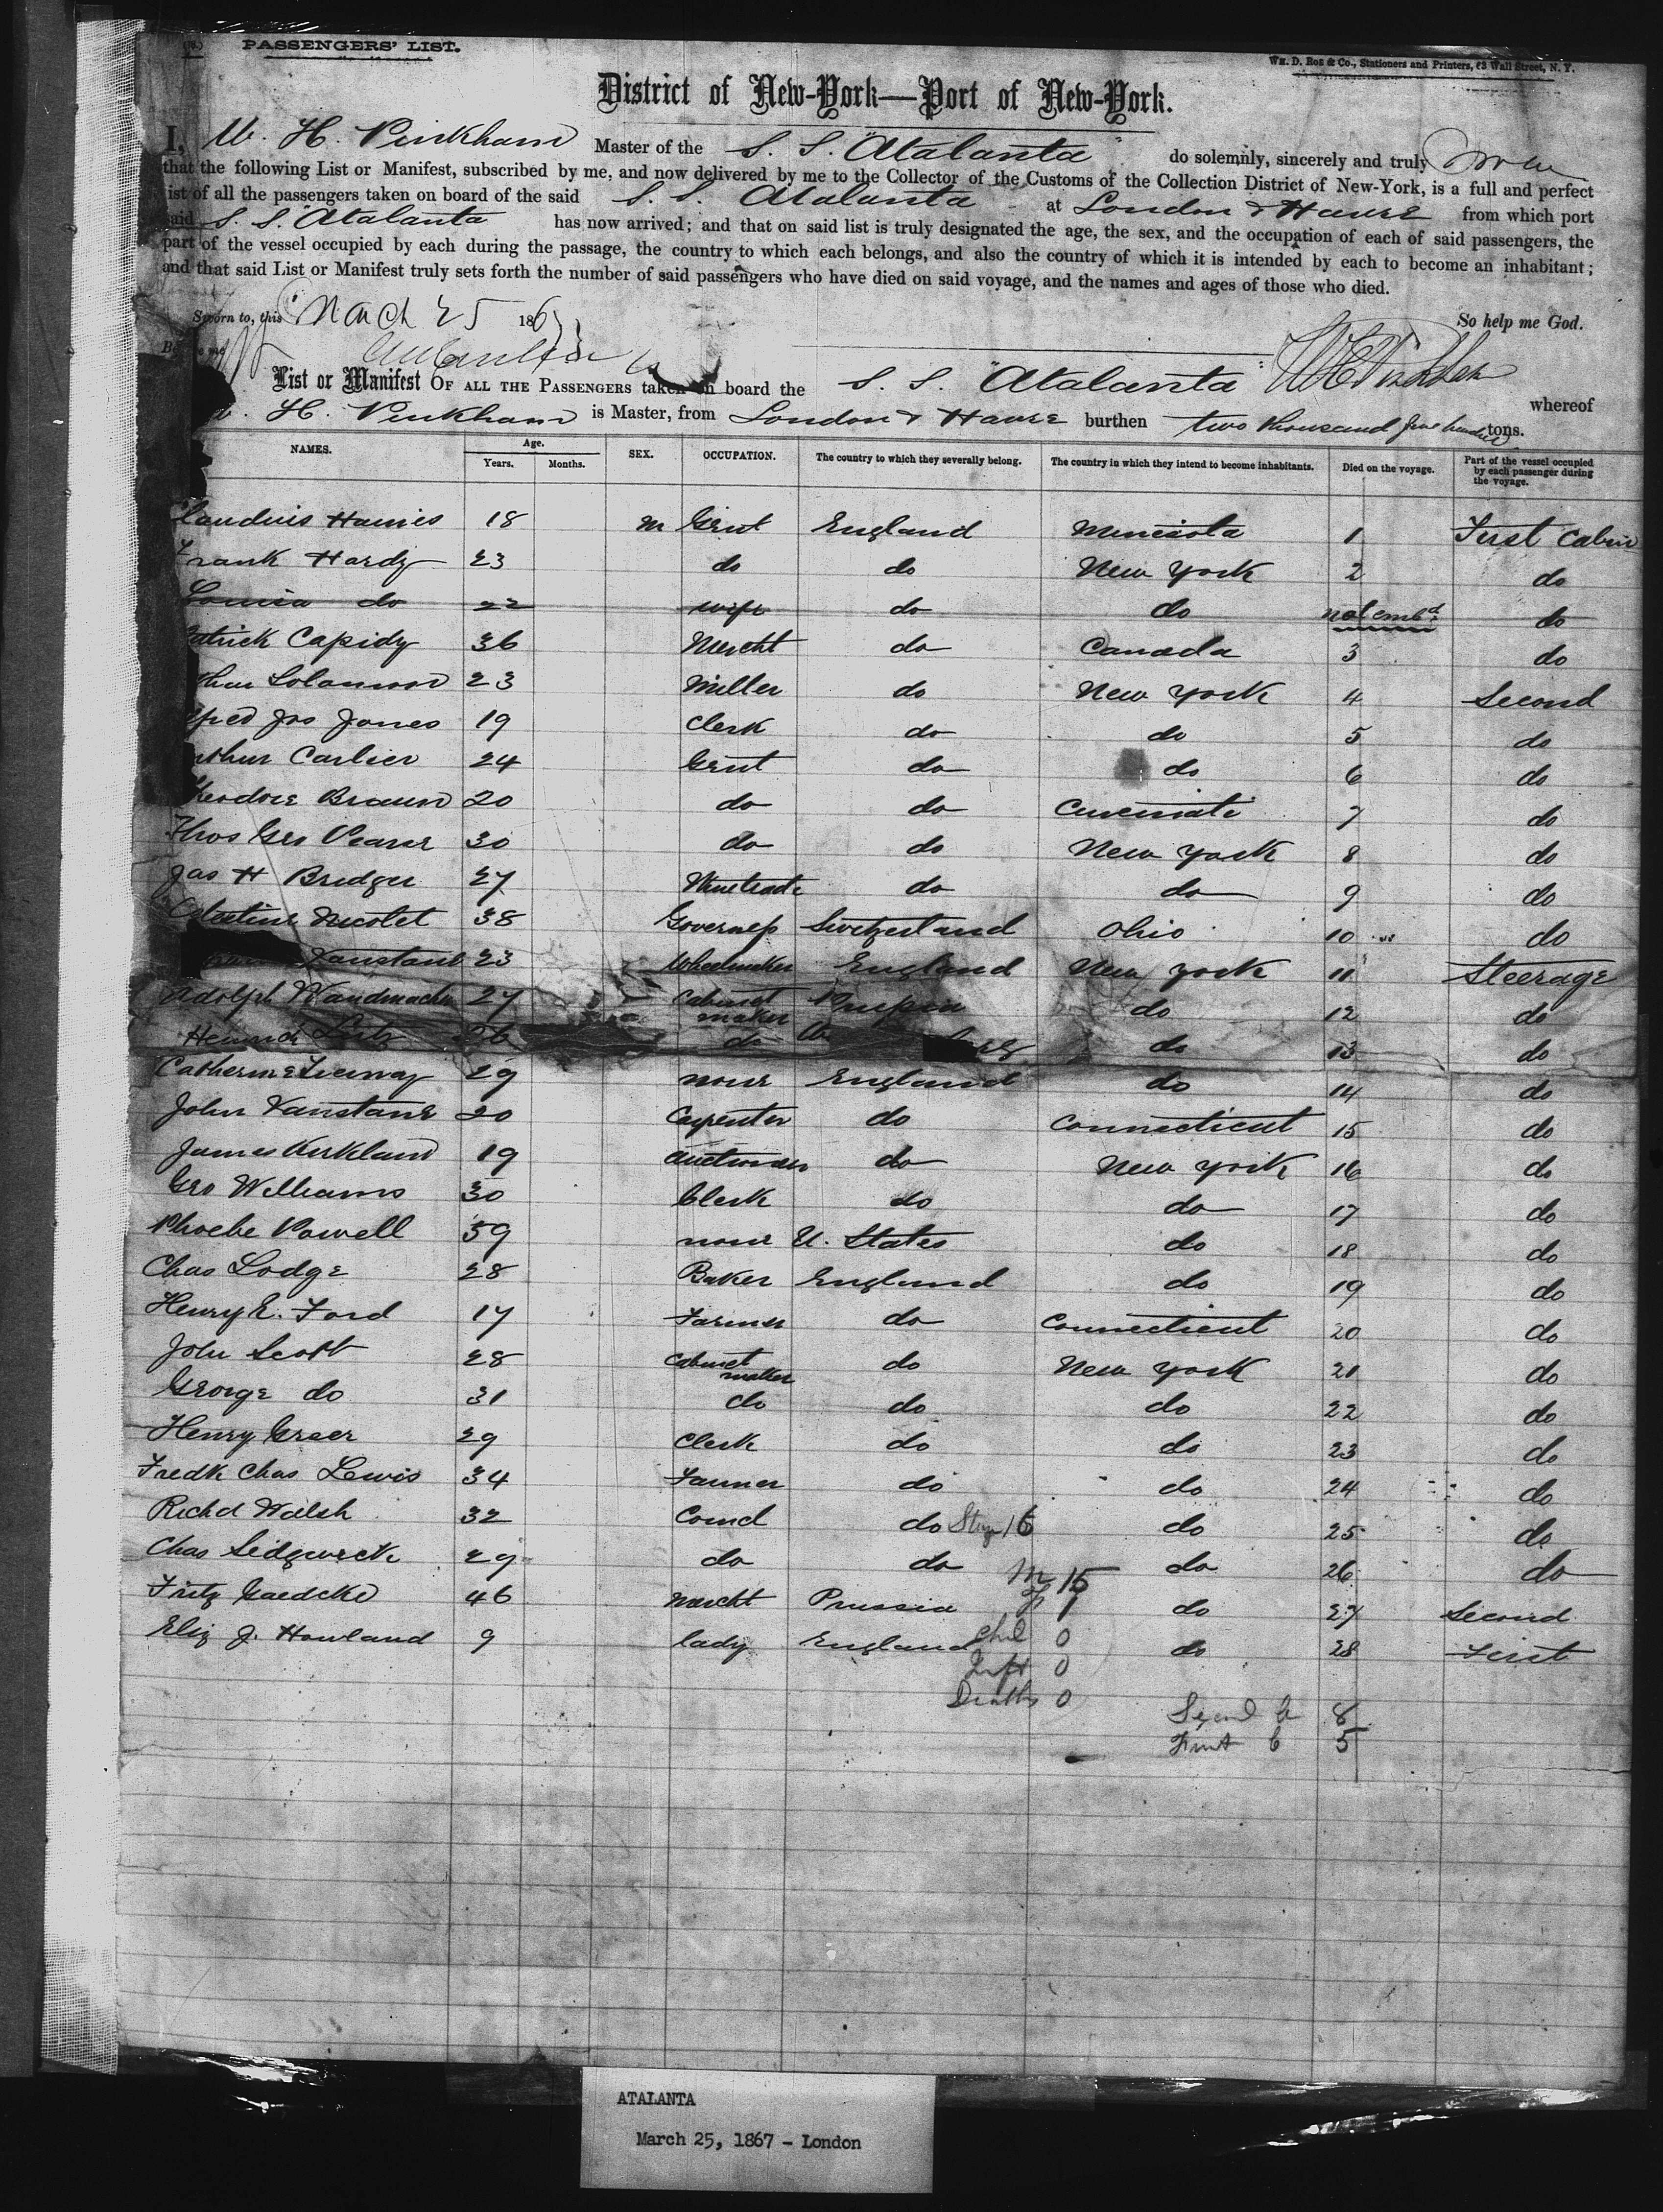 PASSENGERS' LIST.
Wm. D. Roe & Co., Stationers and Printers, 63 Wall Street, N. Y.
District of New-York—Port of New-York.
I, W. H. Pinkham Master of the S. S. "Atalanta" do solemnly, sincerely and truly swear
that the following List or Manifest, subscribed by me, and now delivered by me to the Collector of the Customs of the Collection District of New-York, is a full and perfect
list of all the passengers taken on board of the said S. S. Atalanta at London & Havre from which port
said S. S. "Atalanta has now arrived; and that on said list is truly designated the age, the sex, and the occupation of each of said passengers, the
part of the vessel occupied by each during the passage, the country to which each belongs, and also the country of which it is intended by each to become an inhabitant;
and that said List or Manifest truly sets forth the number of said passengers who have died on said voyage, and the names and ages of those who died.
Sworn to, this March 25 1867 So help me God.
List or Manifest OF ALL THE PASSENGERS taken on board the S. S. "Atalanta" whereof
H. Pinkham is Master, from London & Havre burthen two thousand five hundred tons.
NAMES. Age. Years. Months. SEX. OCCUPATION. The country to which they severally belong. The country in which they intend to become inhabitants. Died on the voyage. Part of the vessel occupied by each passenger during the voyage.
Claudius Haines 18 m Gent England Minesota 1 First Cabin
Frank Hardy 23 do do New York 2 do
Louisa do 22 wife do do not embd do
Patrick Capidy 36 Mercht do Canada 3 do
Solomon 23 Miller do New York 4 Second
Jos Jones 19 Clerk do do 5 do
Arthur Carlier 24 Gent do do 6 do
Theodore Braun 20 do do Cincinati 7 do
Thos Geo Pearse 30 do do New York 8 do
Jas H Bridger 27 Winetrade do do 9 do
Celestine Nicolet 38 Governess Switzerland Ohio 10 do
Vanstant 23 Wheelmaker England New York 11 Steerage
Adolph Wandmacher 27 Cabinet maker Prussia do 12 do
Heinrich Lutz 26 do do 13 do
Catherine 29 none England do 14 do
John Vanstane 20 Carpenter do Connecticut 15 do
James Kirkland 19 do New York 16 do
Geo Williams 30 Clerk do do 17 do
Phoebe Powell 59 none U. States do 18 do
Chas Lodge 28 Baker England do 19 do
Henry E. Ford 17 Farmer do Connecticut 20 do
John Scott 28 Cabinet maker do New York 21 do
George do 31 do do do 22 do
Henry Greer 29 Clerk do do 23 do
Fredk Chas Lewis 34 Farmer do do 24 do
Richd Walsh 32 Comcl do do 25 do
Stge 16
Chas Sidgwick 29 do do do 26 do
M 15
Fritz Gaedcke 46 Mercht Prussia do 27 Second
F 1
Eliz J. Howland 9 lady England do 28 First
Chil 0
Inft 0
Deaths 0
Second C 8
First C 5
ATALANTA
March 25, 1867 - London